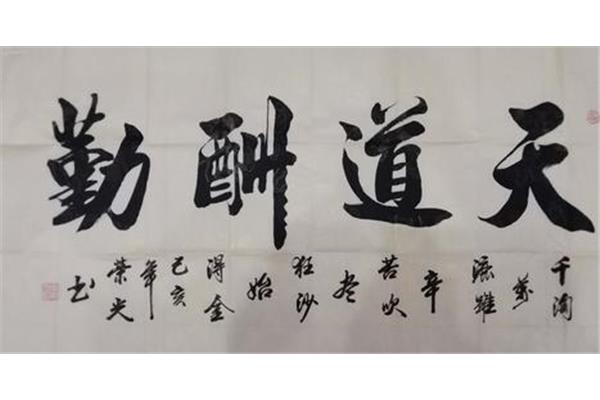 天道酬勤
千淘
萬
漉雖
辛
苦吹
尽
狂沙
始
得金
己亥
年
荣光
书